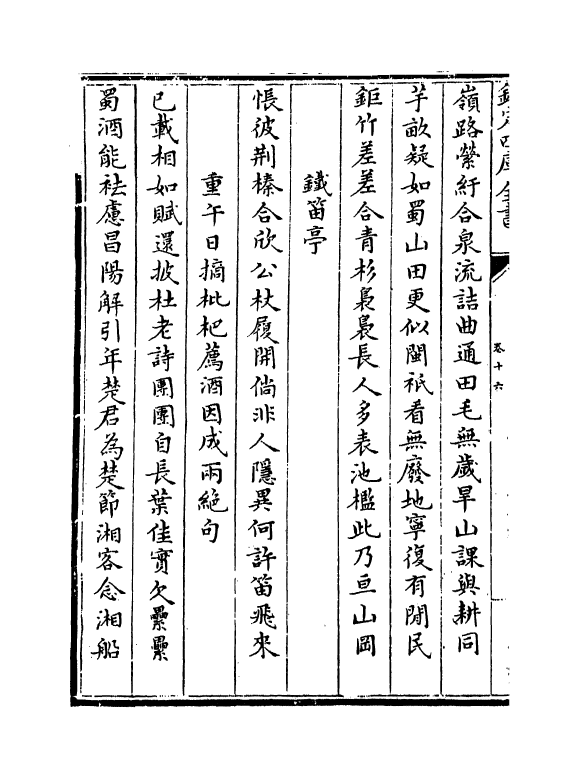 欽定四庫全書
卷十六
嶺路縈紆合泉流詰曲通田毛無歲旱山課與耕同
芋畝疑如蜀山田更似閩祇看無廢地寧復有閒民
鉅竹差差合青杉裊裊長人多表池檻此乃亘山岡
鐵笛亭
悵彼荆榛合欣公杖屨開倘非人隱異何許笛飛來
重午日摘枇杷薦酒因成兩絶句
已載相如賦還披杜老詩團團自長葉佳實欠纍纍
蜀酒能袪慮昌陽解引年楚君為楚節湘客念湘船